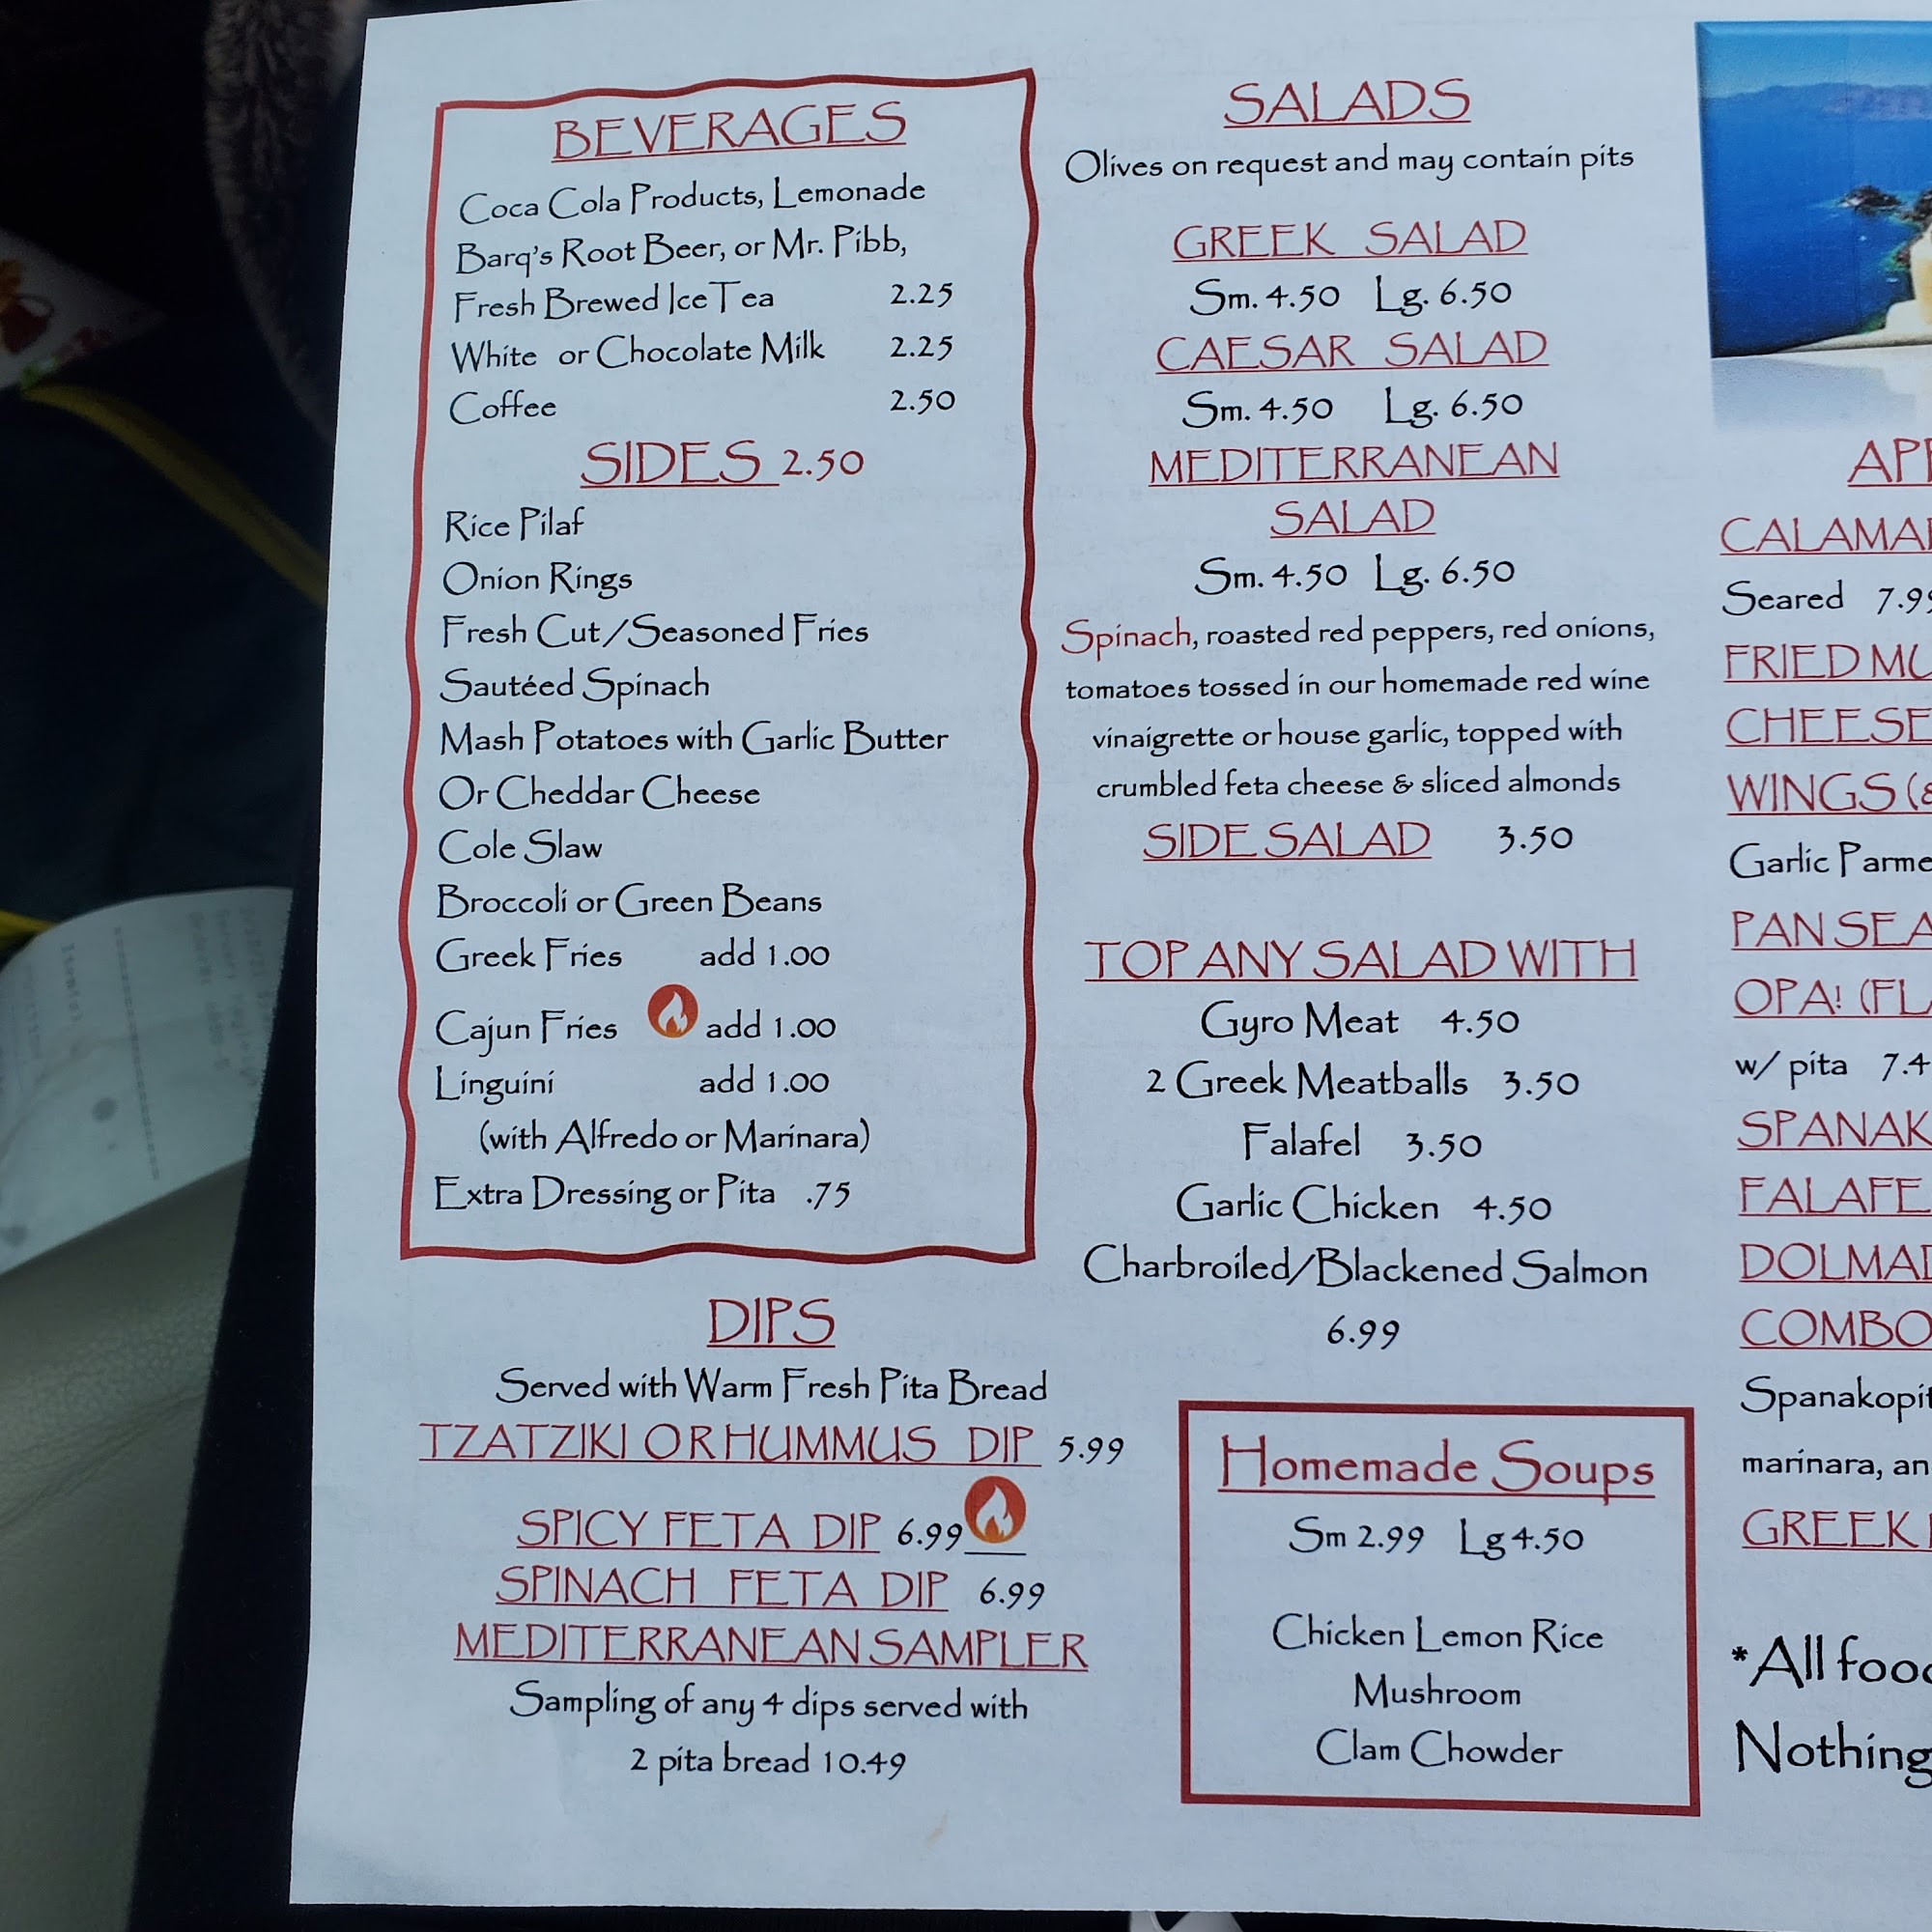 BEVERAGES
Coca Cola Products, Lemonade
Barq's Root Beer, or Mr. Pibb,
Fresh Brewed Ice Tea 2.25
White or Chocolate Milk 2.25
Coffee 2.50
SIDES 2.50
Rice Pilaf
Onion Rings
Fresh Cut/Seasoned Fries
Sautéed Spinach
Mash Potatoes with Garlic Butter
Or Cheddar Cheese
Cole Slaw
Broccoli or Green Beans
Greek Fries add 1.00
Cajun Fries add 1.00
Linguini add 1.00
(with Alfredo or Marinara)
Extra Dressing or Pita .75
DIPS
Served with Warm Fresh Pita Bread
TZATZIKI OR HUMMUS DIP 5.99
SPICY FETA DIP 6.99
SPINACH FETA DIP 6.99
MEDITERRANEAN SAMPLER
Sampling of any 4 dips served with
2 pita bread 10.49
SALADS
Olives on request and may contain pits
GREEK SALAD
Sm. 4.50 Lg. 6.50
CAESAR SALAD
Sm. 4.50 Lg. 6.50
MEDITERRANEAN
SALAD
Sm. 4.50 Lg. 6.50
Spinach, roasted red peppers, red onions,
tomatoes tossed in our homemade red wine
vinaigrette or house garlic, topped with
crumbled feta cheese & sliced almonds
SIDE SALAD 3.50
TOP ANY SALAD WITH
Gyro Meat 4.50
2 Greek Meatballs 3.50
Falafel 3.50
Garlic Chicken 4.50
Charbroiled/Blackened Salmon
6.99
Homemade Soups
Sm 2.99 Lg 4.50
Chicken Lemon Rice
Mushroom
Clam Chowder
Seared
FRIED
CHEESE
WINGS
Garlic
PAN
OPA!
w/ pita
COMBO
marinara,
GREEK
*All
Nothing